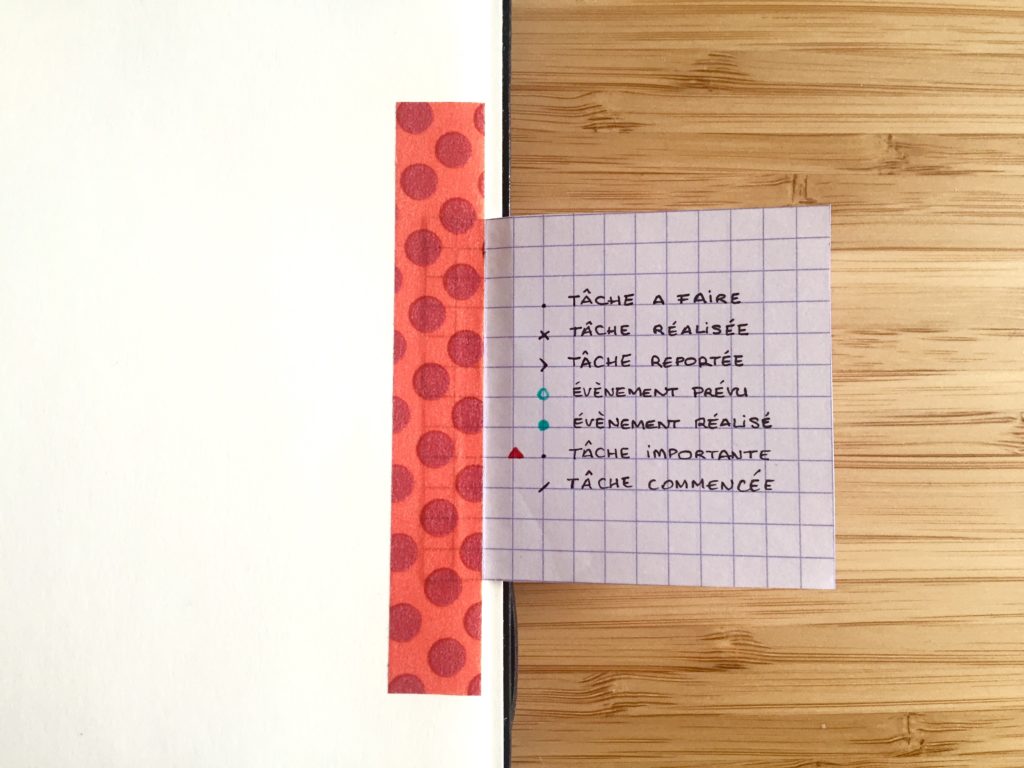 . TÂCHE A FAIRE
x TÂCHE RÉALISÉE
> TÂCHE REPORTÉE
○ ÉVÈNEMENT PRÉVU
● ÉVÈNEMENT RÉALISÉ
▲ . TÂCHE IMPORTANTE
/ TÂCHE COMMENCÉE